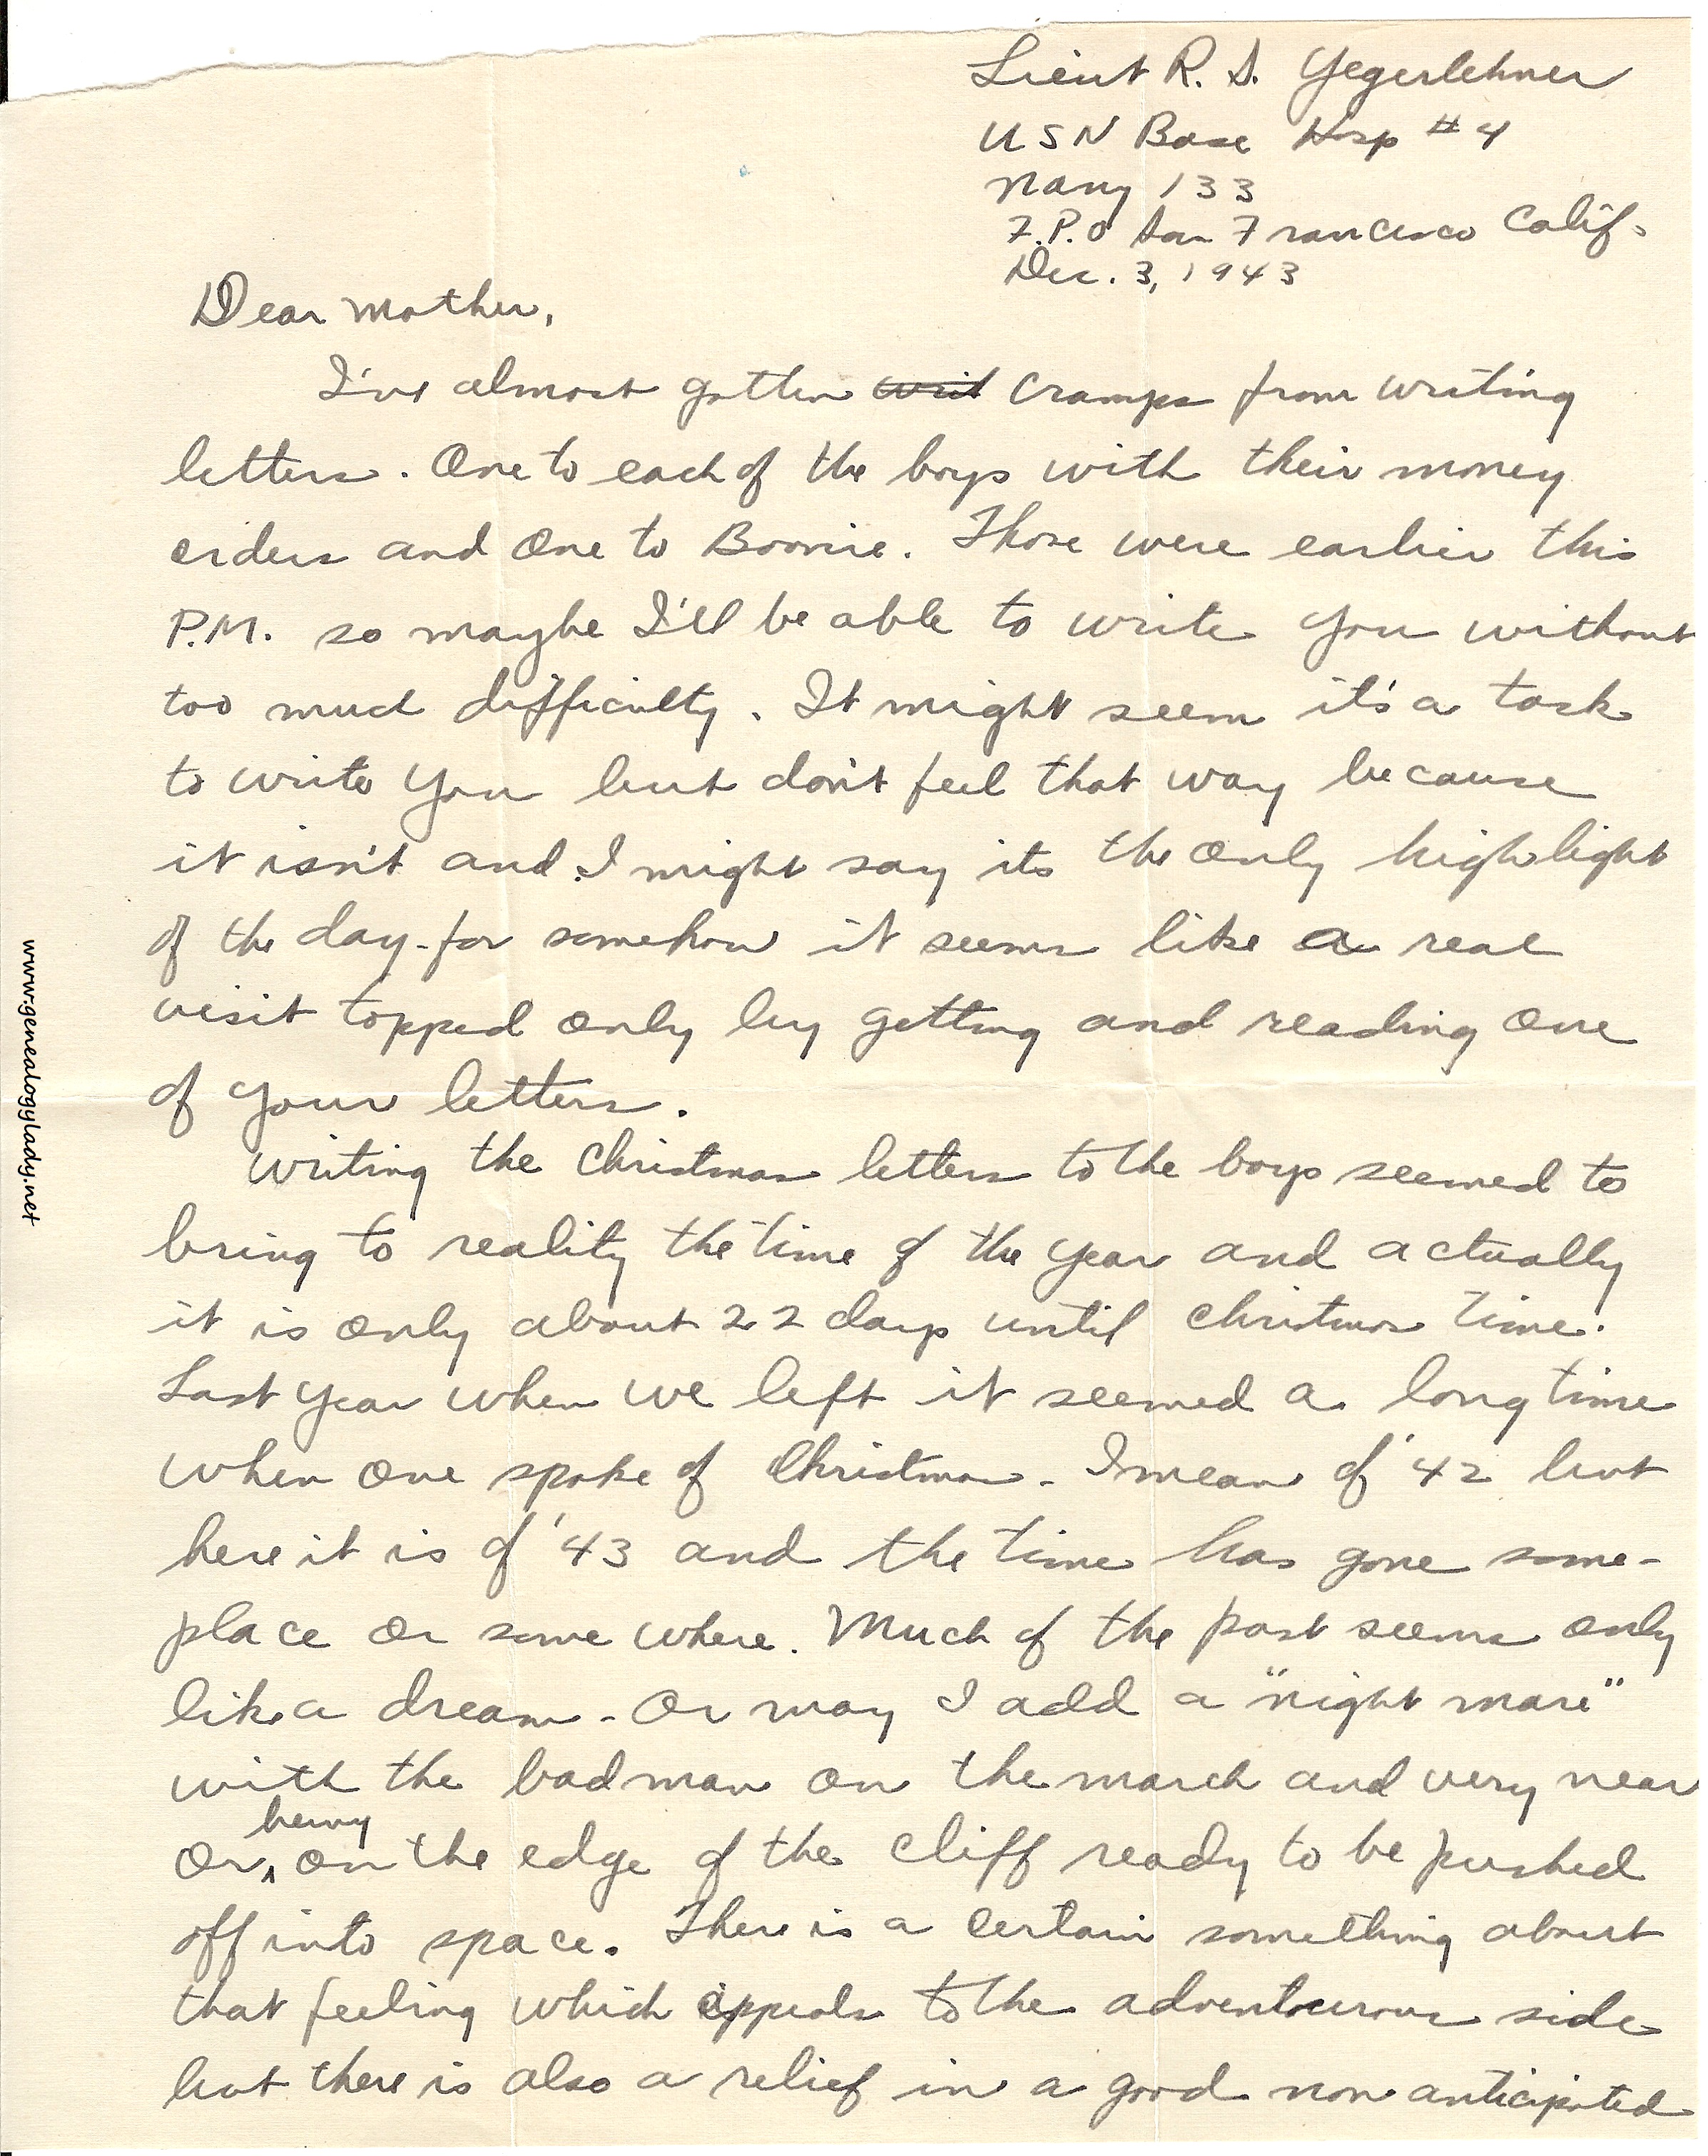 Lieut R. D. Yegerlehner
USN Base Hosp #4
Navy 133
F.P.O San Francisco Calif.
Dec. 3, 1943
Dear Mother,
I've almost gotten writ cramps from writing
letters. One to each of the boys with their money
orders and one to Boonie. Those were earlier this
P.M. so maybe I'll be able to write you without
too much difficulty. It might seem it's a task
to write you but don't feel that way because
it isn't and I might say its the only highlight
of the day - for somehow it seems like a real
visit topped only by getting and reading one
of your letters.
Writing the Christmas letters to the boys seemed to
bring to reality the time of the year and actually
it is only about 22 days until Christmas time.
Last year when we left it seemed a long time
when one spoke of Christmas - I mean of '42 but
here it is of '43 and the time has gone some-
place or some where. Much of the past seems only
like a dream - or may I add a "night mare"
with the bad man on the march and very near
or being on the edge of the cliff ready to be pushed
off into space. There is a certain something about
that feeling which appeals to the adventourous side
but there is also a relief in a good non anticipated
www.genealogylady.net